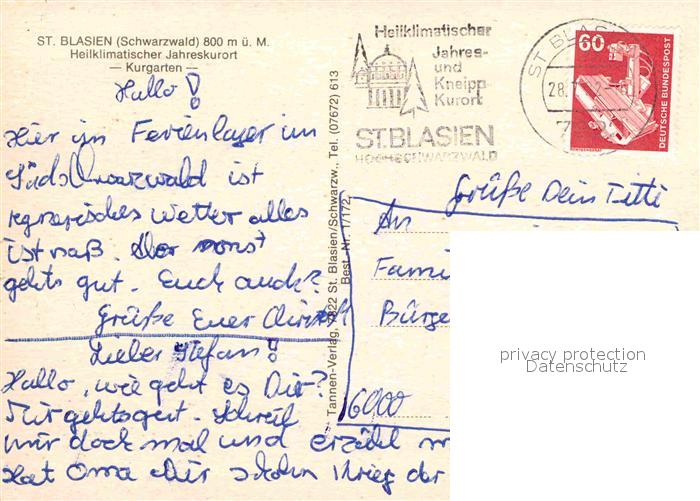 ST. BLASIEN (Schwarzwald) 800 m ü. M.
Heilklimatischer Jahreskurort
— Kurgarten —
Hallo!
Hier im Ferienlager im
Südschwarzwald ist
regnerisches Wetter alles
ist naß. Aber sonst
gehts gut. Euch auch?
Grüße Euer
Lieber Stefan!
Hallo, wie geht es Dir?
Mir gehts gut. Schreib
mir doch mal und erzähl
Hat Oma Dir schon
Tannen-Verlag, 7822 St. Blasien/Schwarzw., Tel. (07672) 613
Best.-Nr. 1/172
Heilklimatischer
Jahres-
und
Kneipp-
Kurort
ST. BLASIEN
HOCHSCHWARZWALD
ST BLAS
28.
60
DEUTSCHE BUNDESPOST
Grüße Dein Titti
An
Fami
Bürge
6000
privacy protection
Datenschutz